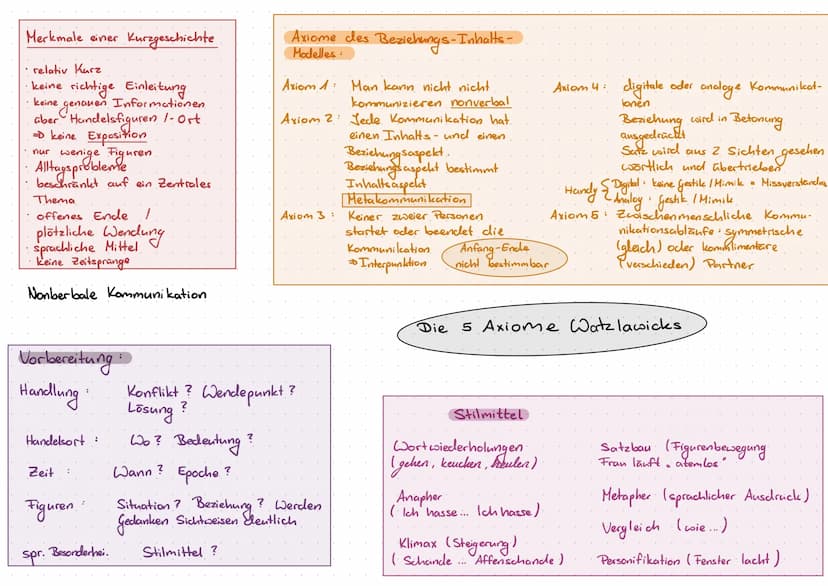 Merkmale einer Kurzgeschichte
· relativ Kurz
· keine richtige Einleitung
· keine genauen Informationen
über Handelsfiguren /-Ort
⇒ keine Exposition
· nur wenige Figuren
· Alltagsprobleme
· beschränkt auf ein Zentrales
Thema
· offenes Ende /
plötzliche Wendung
· sprachliche Mittel
· keine Zeitsprünge
Nonberbale Kommunikation
Axiome des Beziehungs-Inhalts-
Modelles:
Axiom 1: Man kann nicht nicht
kommunizieren nonverbal
Axiom 2: Jede Kommunikation hat
einen Inhalts- und einen
Beziehungsaspekt.
Beziehungsaspekt bestimmt
Inhaltsaspekt
Metakommunikation
Axiom 3: Keiner zweier Personen
startet oder beendet die
Kommunikation
⇒ Interpunktion
Anfang-Ende
nicht bestimmbar
Axiom 4: digitale oder analoge Kommunikat-
ionen
Beziehung wird in Betonung
ausgedrückt
Satz wird aus 2 Sichten gesehen
wörtlich und übertrieben
Handy { Digital: keine Gestik/Mimik = Missverständnis
Analog: Gestik/Mimik
Axiom 5: Zwischenmenschliche Kommu-
nikationsabläufe: symmetrische
(gleich) oder komplimentäre
(verschieden) Partner
Die 5 Axiome Watzlawicks
Vorbereitung:
Handlung: Konflikt? Wendepunkt?
Lösung?
Handelsort: Wo? Bedeutung?
Zeit: Wann? Epoche?
Figuren: Situation? Beziehung? Werden
Gedanken Sichtweisen deutlich
spr. Besonderhei. Stilmittel?
Stilmittel
Wortwiederholungen
(gehen, keuchen, heulen)
Anapher
(Ich hasse... Ich hasse)
Klimax (Steigerung)
(Schande... Affenschande)
Satzbau (Figurenbewegung
Frau läuft „atemlos"
Metapher (sprachlicher Ausdruck)
Vergleich (wie...)
Personifikation (Fenster lacht)